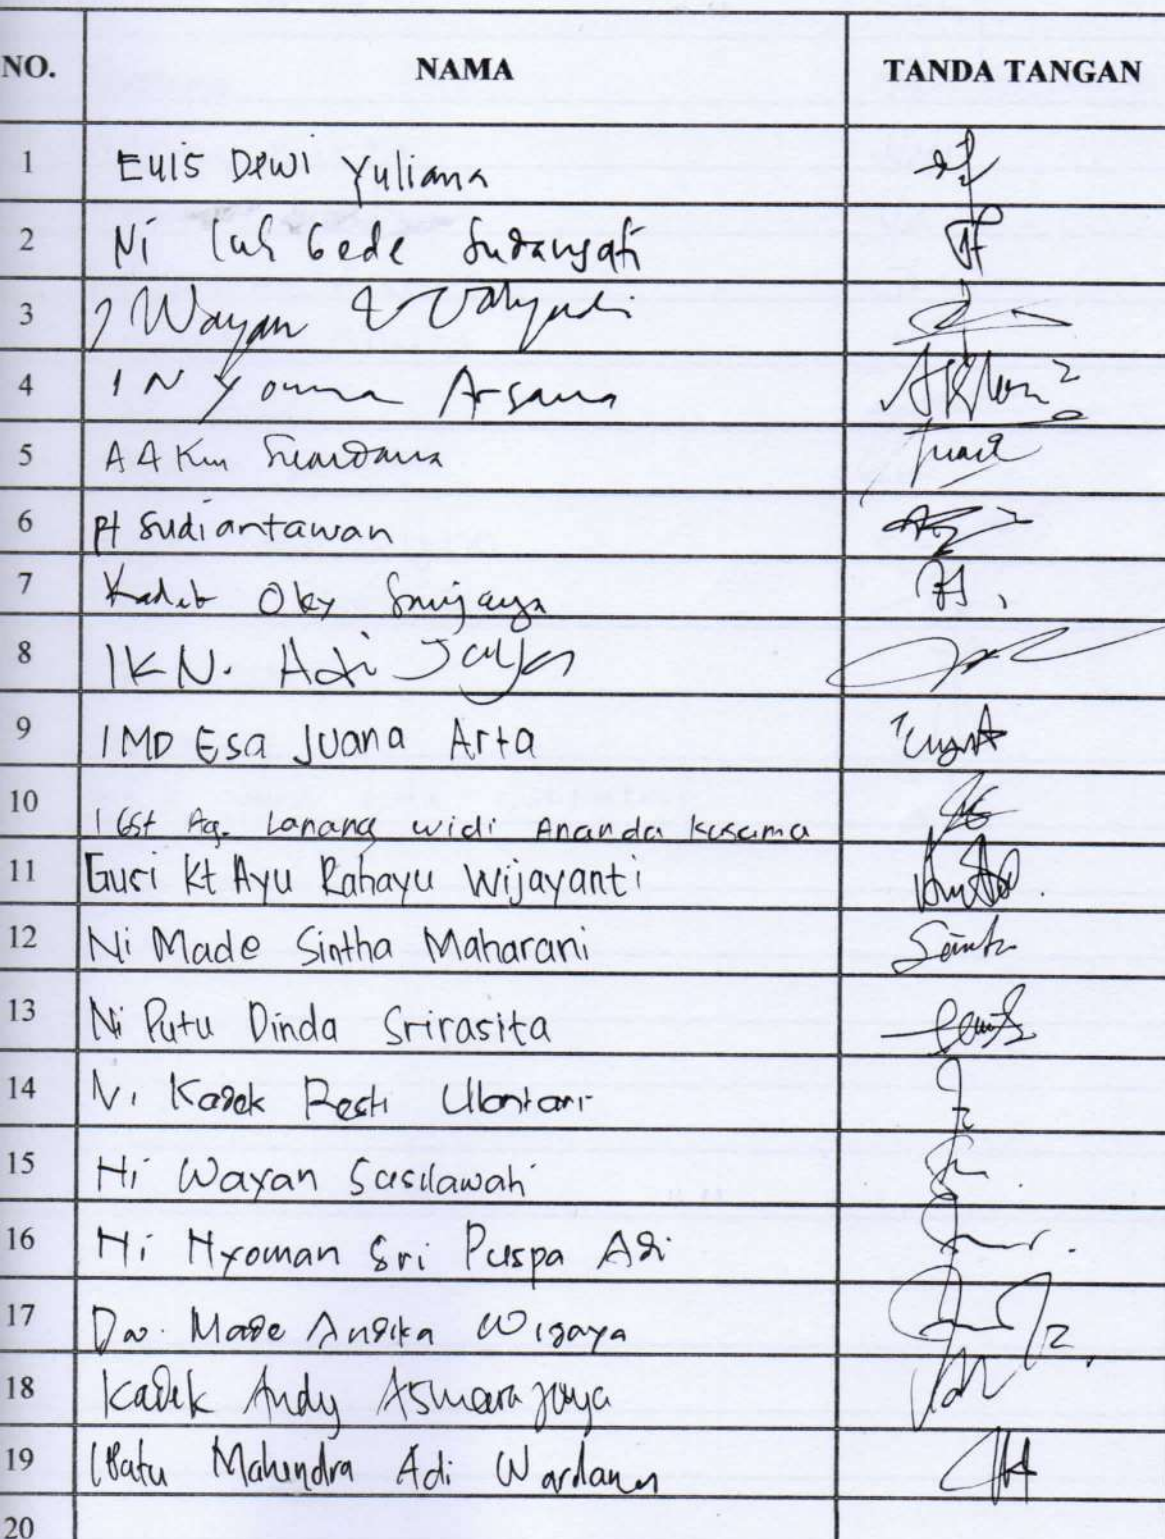 NO. NAMA TANDA TANGAN
1 Euis Dewi Yuliana
2 Ni Luh Gede
3 I Wayan Wahyudi
4 I Nyoman Arsana
5 AA Km Suardana
6 Pt Sudiantawan
7 Kadek Oky Sanjaya
8 IKN. Adi Jaya
9 IMD Esa Juana Arta
10 I Gst Ag. Lanang Widi Ananda Kusuma
11 Gusi Kt Ayu Rahayu Wijayanti
12 Ni Made Sintha Maharani
13 Ni Putu Dinda Srirasita
14 Ni Kadek Resti Ulantari
15 Ni Wayan Susilawati
16 Ni Nyoman Sri Puspa Adi
17 Dw. Made Andika Wijaya
18 Kadek Andy Asmarajaya
19 Mahendra Adi Wardana
20